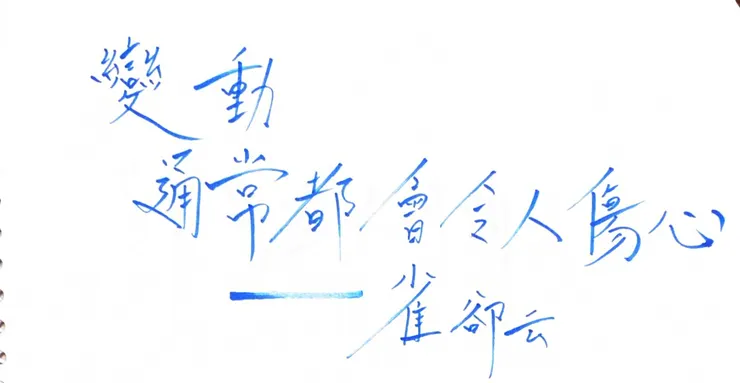 變動
通常都會令人傷心
——雀卻云